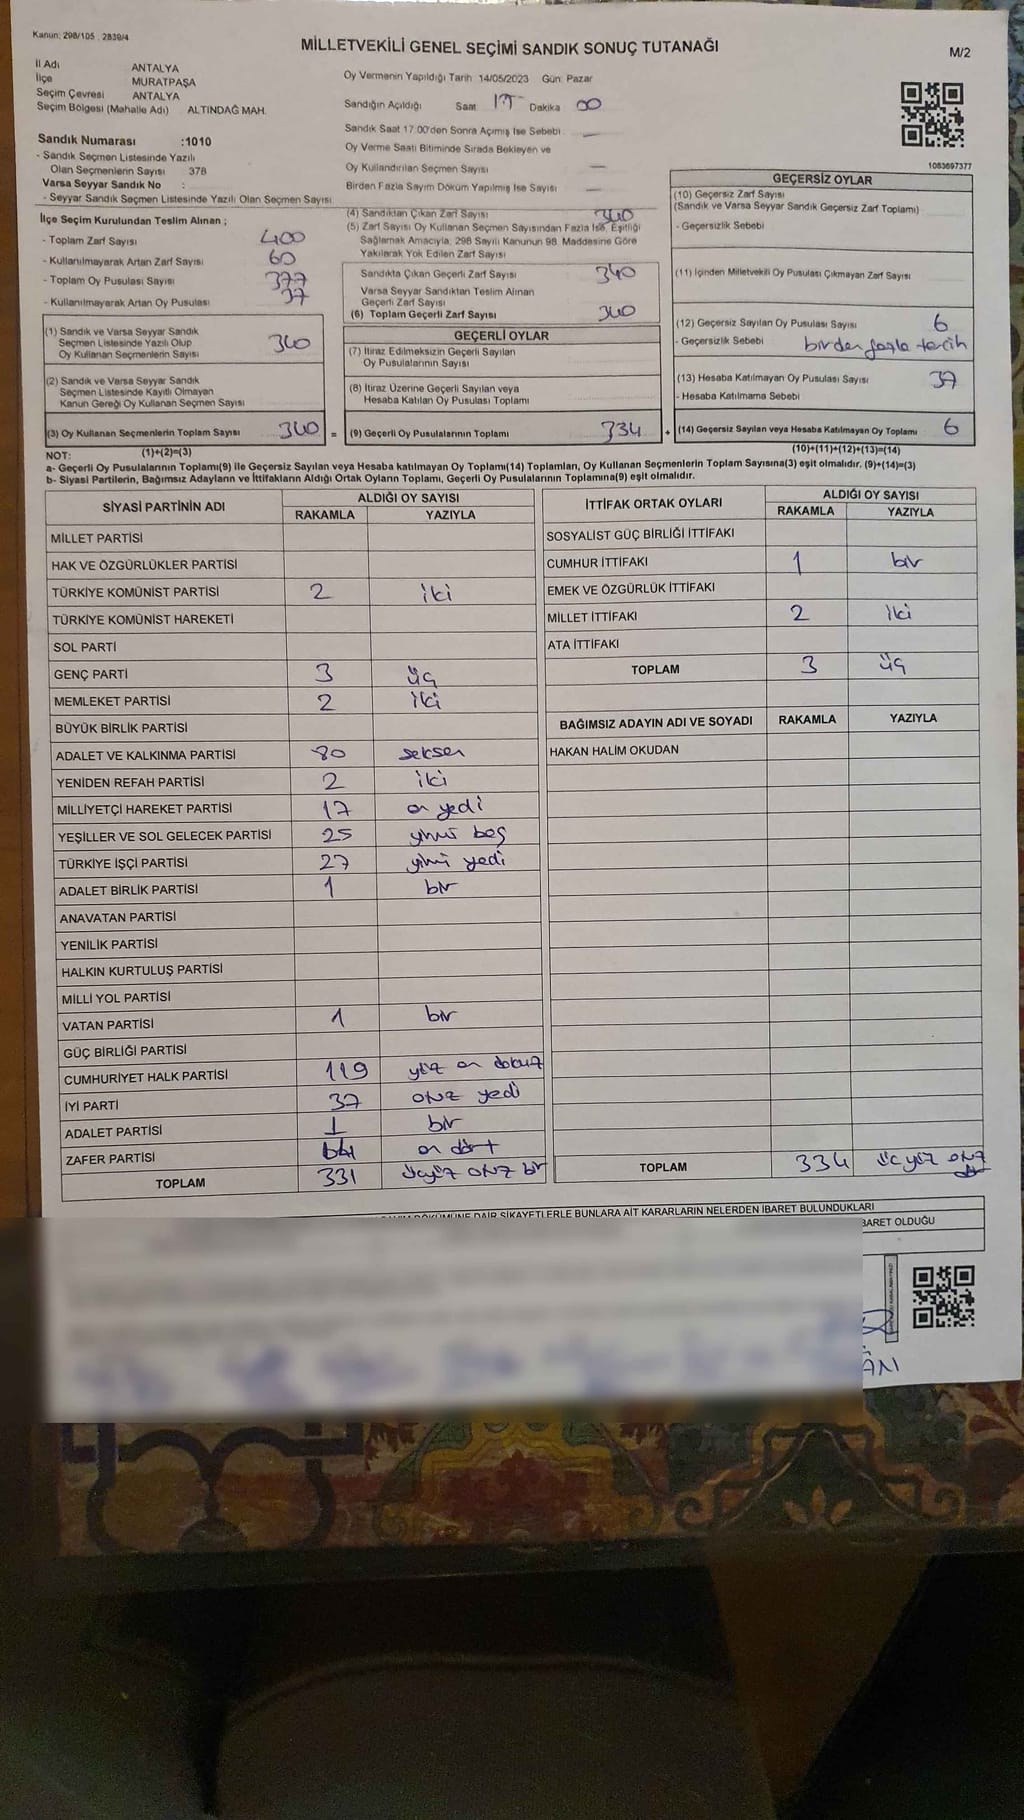 Kanun: 298/105 . 2839/4
MİLLETVEKİLİ GENEL SEÇİMİ SANDIK SONUÇ TUTANAĞI
M/2
İl Adı ANTALYA
İlçe MURATPAŞA
Seçim Çevresi ANTALYA
Seçim Bölgesi (Mahalle Adı) ALTINDAĞ MAH.
Sandık Numarası :1010
- Sandık Seçmen Listesinde Yazılı
Olan Seçmenlerin Sayısı 378
Varsa Seyyar Sandık No :
- Seyyar Sandık Seçmen Listesinde Yazılı Olan Seçmen Sayısı
Oy Vermenin Yapıldığı Tarih 14/05/2023 Gün: Pazar
Sandığın Açıldığı Saat 17 Dakika 00
Sandık Saat 17.00'den Sonra Açımış İse Sebebi: —
Oy Verme Saati Bitiminde Sırada Bekleyen ve
Oy Kullandırılan Seçmen Sayısı —
Birden Fazla Sayım Döküm Yapılmış İse Sayısı —
1083697377
İlçe Seçim Kurulundan Teslim Alınan ;
- Toplam Zarf Sayısı 400
- Kullanılmayarak Artan Zarf Sayısı 60
- Toplam Oy Pusulası Sayısı 377
- Kullanılmayarak Artan Oy Pusulası 37
(1) Sandık ve Varsa Seyyar Sandık
Seçmen Listesinde Yazılı Olup
Oy Kullanan Seçmenlerin Sayısı 340
(2) Sandık ve Varsa Seyyar Sandık
Seçmen Listesinde Kayıtlı Olmayan
Kanun Gereği Oy Kullanan Seçmen Sayısı
(3) Oy Kullanan Seçmenlerin Toplam Sayısı 340 =
(1)+(2)=(3)
(4) Sandıktan Çıkan Zarf Sayısı 340
(5) Zarf Sayısı Oy Kullanan Seçmen Sayısından Fazla İse, Eşitliği
Sağlamak Amacıyla, 298 Sayılı Kanunun 98. Maddesine Göre
Yakılarak Yok Edilen Zarf Sayısı
Sandıkta Çıkan Geçerli Zarf Sayısı 340
Varsa Seyyar Sandıktan Teslim Alınan
Geçerli Zarf Sayısı
(6) Toplam Geçerli Zarf Sayısı 340
GEÇERLİ OYLAR
(7) İtiraz Edilmeksizin Geçerli Sayılan
Oy Pusulalarının Sayısı
(8) İtiraz Üzerine Geçerli Sayılan veya
Hesaba Katılan Oy Pusulası Toplamı
(9) Geçerli Oy Pusulalarının Toplamı 334 +
GEÇERSİZ OYLAR
(10) Geçersiz Zarf Sayısı
(Sandık ve Varsa Seyyar Sandık Geçersiz Zarf Toplamı)
- Geçersizlik Sebebi
(11) İçinden Milletvekili Oy Pusulası Çıkmayan Zarf Sayısı
(12) Geçersiz Sayılan Oy Pusulası Sayısı 6
- Geçersizlik Sebebi birden fazla tercih
(13) Hesaba Katılmayan Oy Pusulası Sayısı 37
- Hesaba Katılmama Sebebi
(14) Geçersiz Sayılan veya Hesaba Katılmayan Oy Toplamı 6
(10)+(11)+(12)+(13)=(14)
NOT:
a- Geçerli Oy Pusulalarının Toplamı(9) ile Geçersiz Sayılan veya Hesaba katılmayan Oy Toplamı(14) Toplamları, Oy Kullanan Seçmenlerin Toplam Sayısına(3) eşit olmalıdır. (9)+(14)=(3)
b- Siyasi Partilerin, Bağımsız Adayların ve İttifakların Aldığı Ortak Oyların Toplamı, Geçerli Oy Pusulalarının Toplamına(9) eşit olmalıdır.
SİYASİ PARTİNİN ADI ALDIĞI OY SAYISI
RAKAMLA YAZIYLA
MİLLET PARTİSİ
HAK VE ÖZGÜRLÜKLER PARTİSİ
TÜRKİYE KOMÜNİST PARTİSİ 2 iki
TÜRKİYE KOMÜNİST HAREKETİ
SOL PARTİ
GENÇ PARTİ 3 üç
MEMLEKET PARTİSİ 2 iki
BÜYÜK BİRLİK PARTİSİ
ADALET VE KALKINMA PARTİSİ 80 seksen
YENİDEN REFAH PARTİSİ 2 iki
MİLLİYETÇİ HAREKET PARTİSİ 17 on yedi
YEŞİLLER VE SOL GELECEK PARTİSİ 25 yirmi beş
TÜRKİYE İŞÇİ PARTİSİ 27 yirmi yedi
ADALET BİRLİK PARTİSİ 1 bir
ANAVATAN PARTİSİ
YENİLİK PARTİSİ
HALKIN KURTULUŞ PARTİSİ
MİLLİ YOL PARTİSİ
VATAN PARTİSİ 1 bir
GÜÇ BİRLİĞİ PARTİSİ
CUMHURİYET HALK PARTİSİ 119 yüz on dokuz
İYİ PARTİ 37 otuz yedi
ADALET PARTİSİ 1 bir
ZAFER PARTİSİ 14 on dört
TOPLAM 331 üçyüz otuz bir
İTTİFAK ORTAK OYLARI ALDIĞI OY SAYISI
RAKAMLA YAZIYLA
SOSYALİST GÜÇ BİRLİĞİ İTTİFAKI
CUMHUR İTTİFAKI 1 bir
EMEK VE ÖZGÜRLÜK İTTİFAKI
MİLLET İTTİFAKI 2 iki
ATA İTTİFAKI
TOPLAM 3 üç
BAĞIMSIZ ADAYIN ADI VE SOYADI RAKAMLA YAZIYLA
HAKAN HALİM OKUDAN
TOPLAM 334 üç yüz otuz
DÖKÜMÜNE DAİR ŞİKAYETLERLE BUNLARA AİT KARARLARIN NELERDEN İBARET BULUNDUKLARI
BARET OLDUĞU